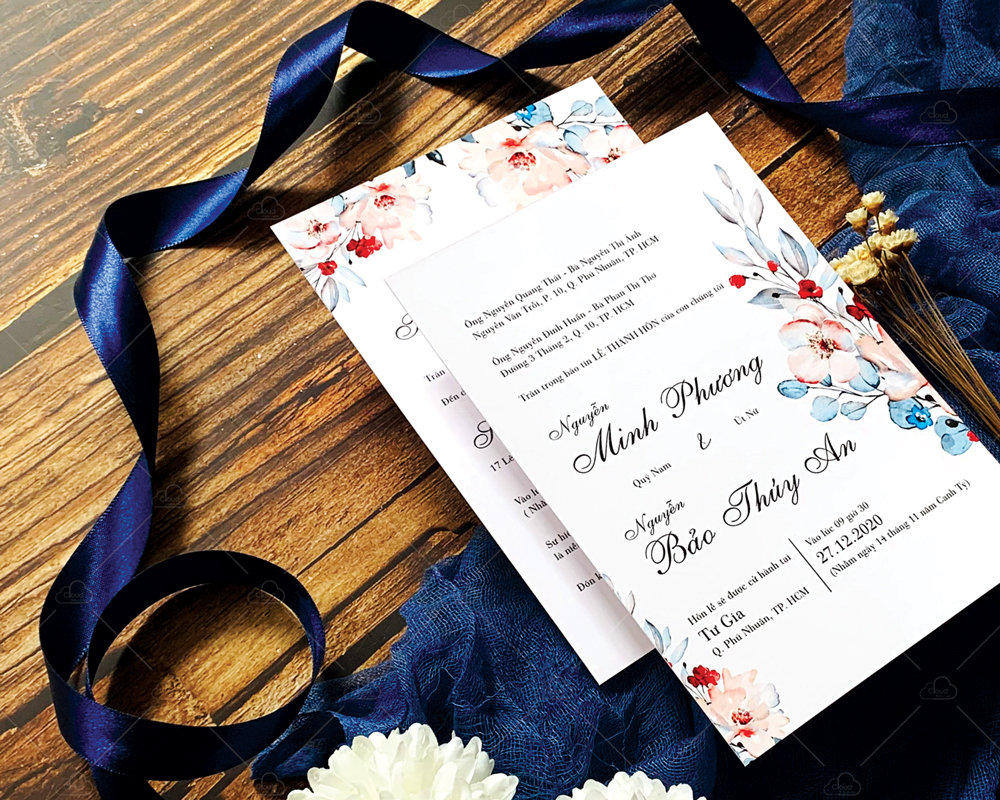 Ông Nguyễn Quang Thái - Bà Nguyễn Thị Ánh
Nguyễn Văn Trỗi, P. 10, Q. Phú Nhuận, TP. HCM
Ông Nguyễn Đình Huấn - Bà Phan Thị Thơ
Đường 3 Tháng 2, Q. 10, TP. HCM
Trân trọng báo tin LỄ THÀNH HÔN của con chúng tôi
Nguyễn
Minh Phương
Út Nữ
&
Quý Nam
Nguyễn
Bảo Thúy An
Hôn lễ sẽ được cử hành tại
Tư Gia
Q. Phú Nhuận, TP. HCM
Vào lúc 09 giờ 30
27.12.2020
(Nhằm ngày 14 tháng 11 năm Canh Tý)
Trân
Đến d
17 Lê
Vào l
( Nhằ
Sự hi
là niề
Đón k